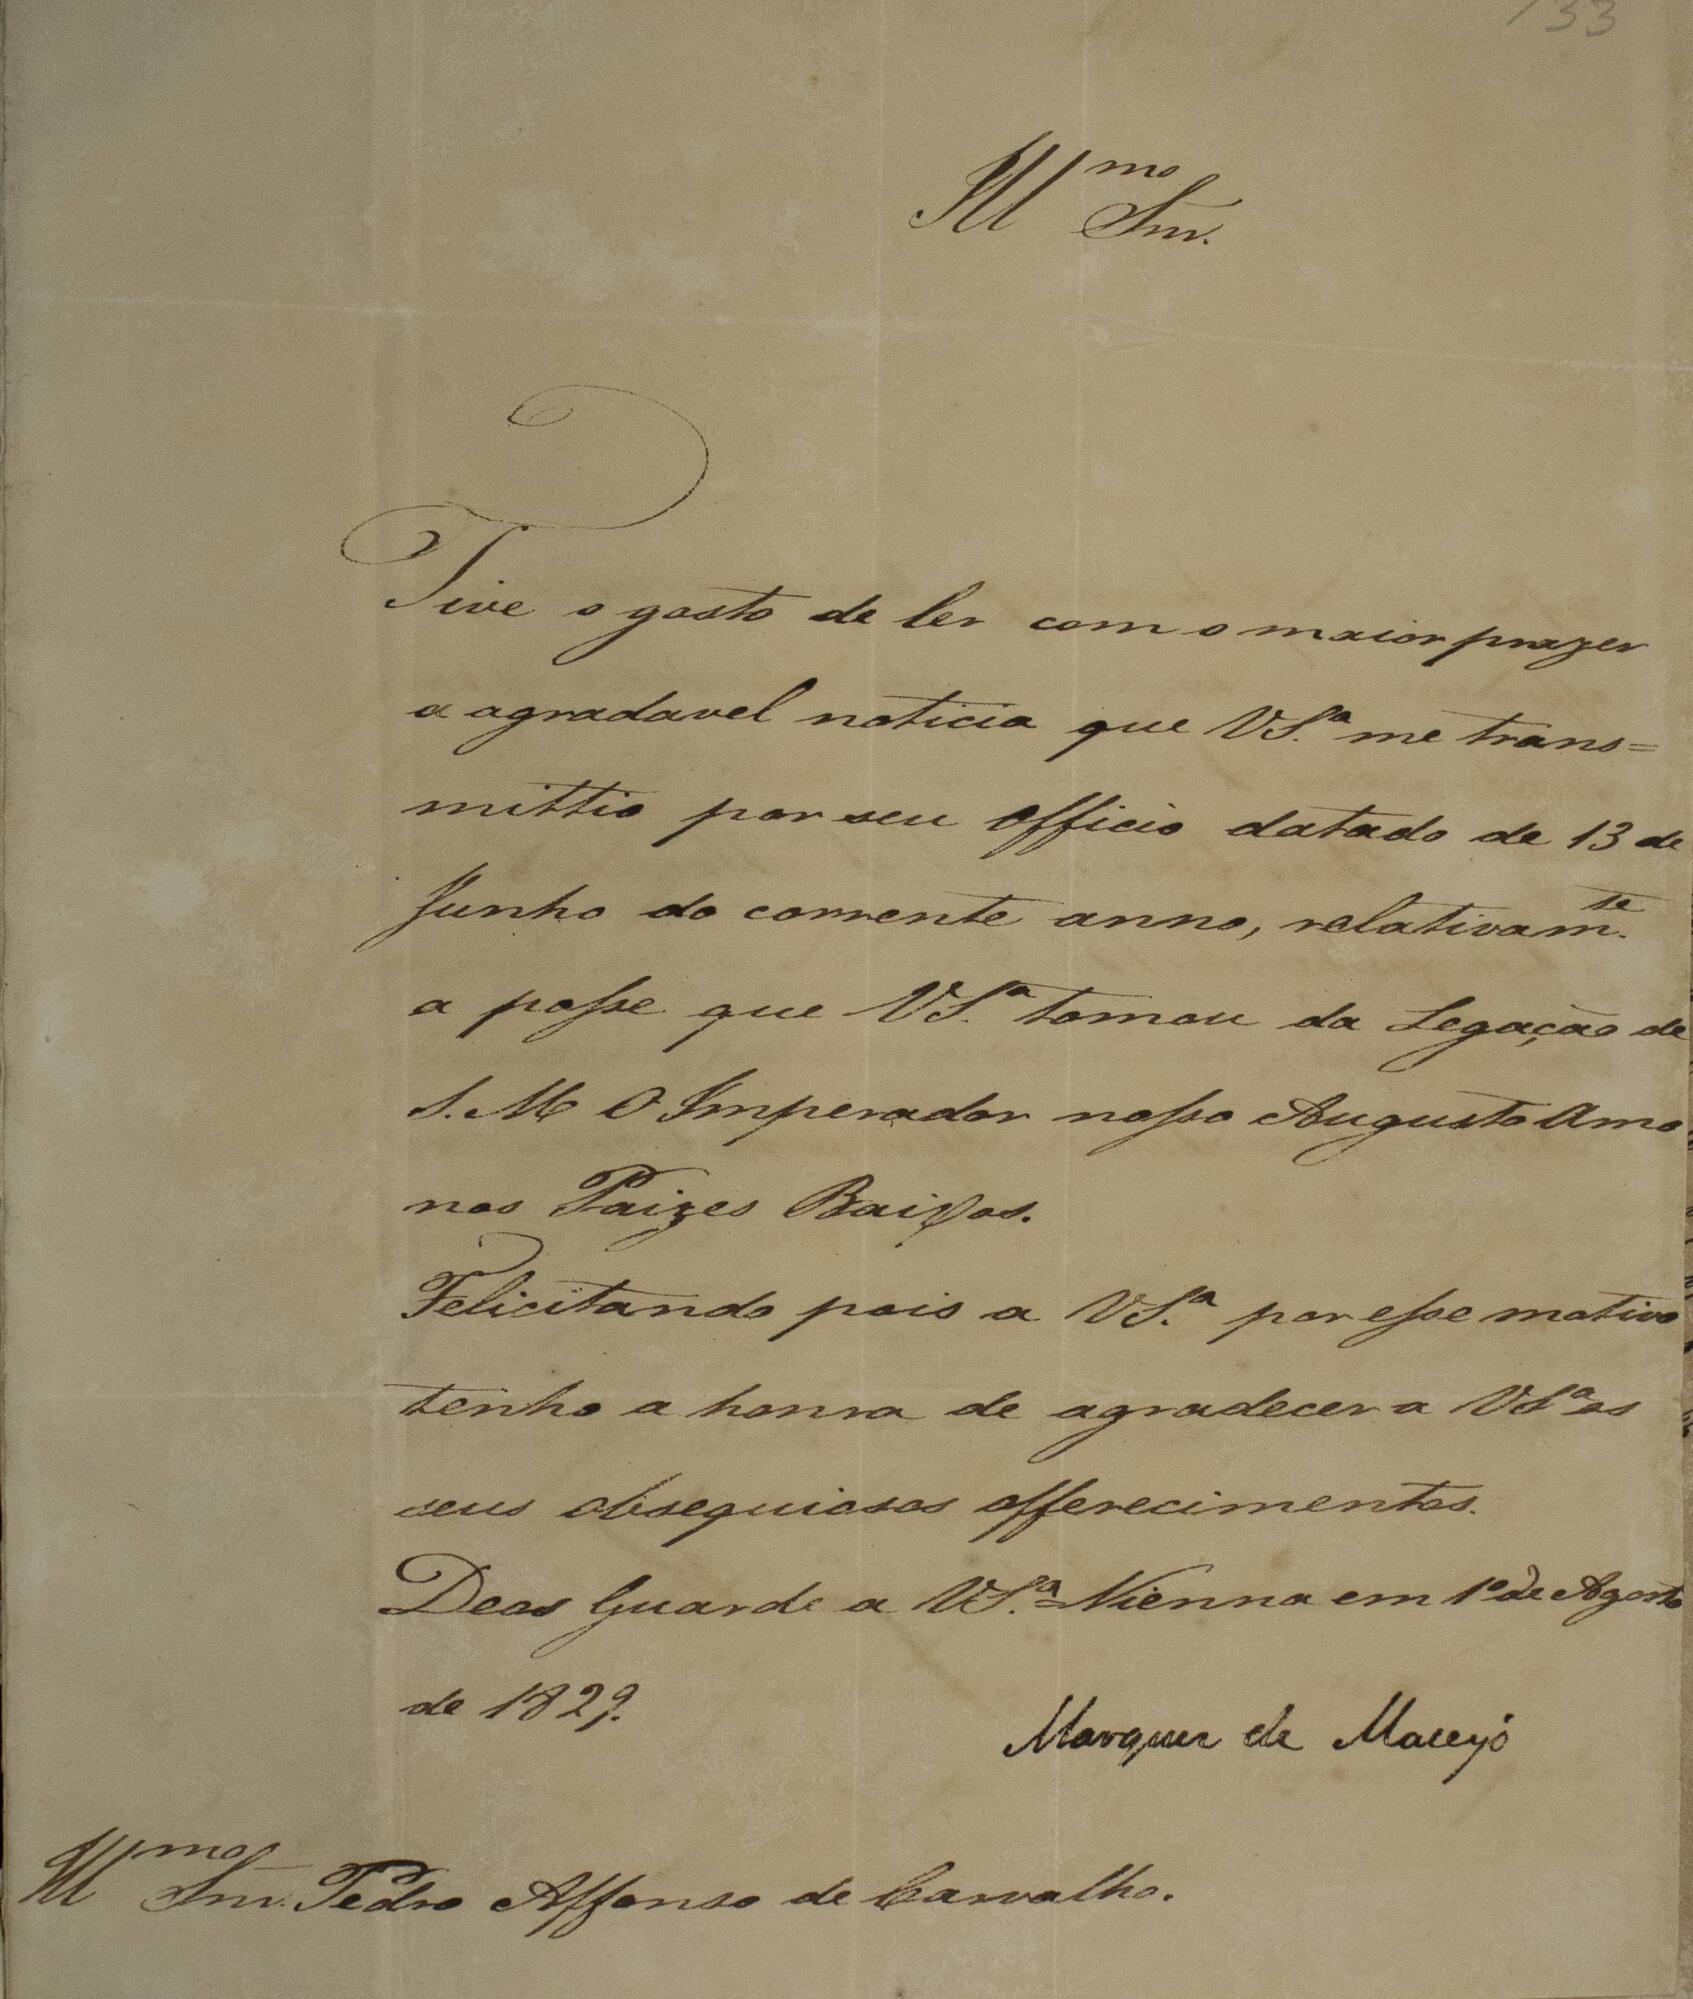 133
Ill mo Snr.
Tive o gosto de ler com o maior prazer
a agradavel noticia que VS.ª me trans=
mittio por seu Officio datado de 13 de
Junho do corrente anno, relativam.te
a posse que VS.ª tomou da Legação de
S. M O Imperador nosso Augusto Amo
nos Paizes Baixos.
Felicitando pois a VS.ª por esse motivo
tenho a honra de agradecer a VSª os
seus obsequiosos offerecimentos.
Deos Guarde a VS.ª Vienna em 1º de Agosto
de 1829.
Marquez de Maceyó
Ill mo Snr. Pedro Affonso de Carvalho.